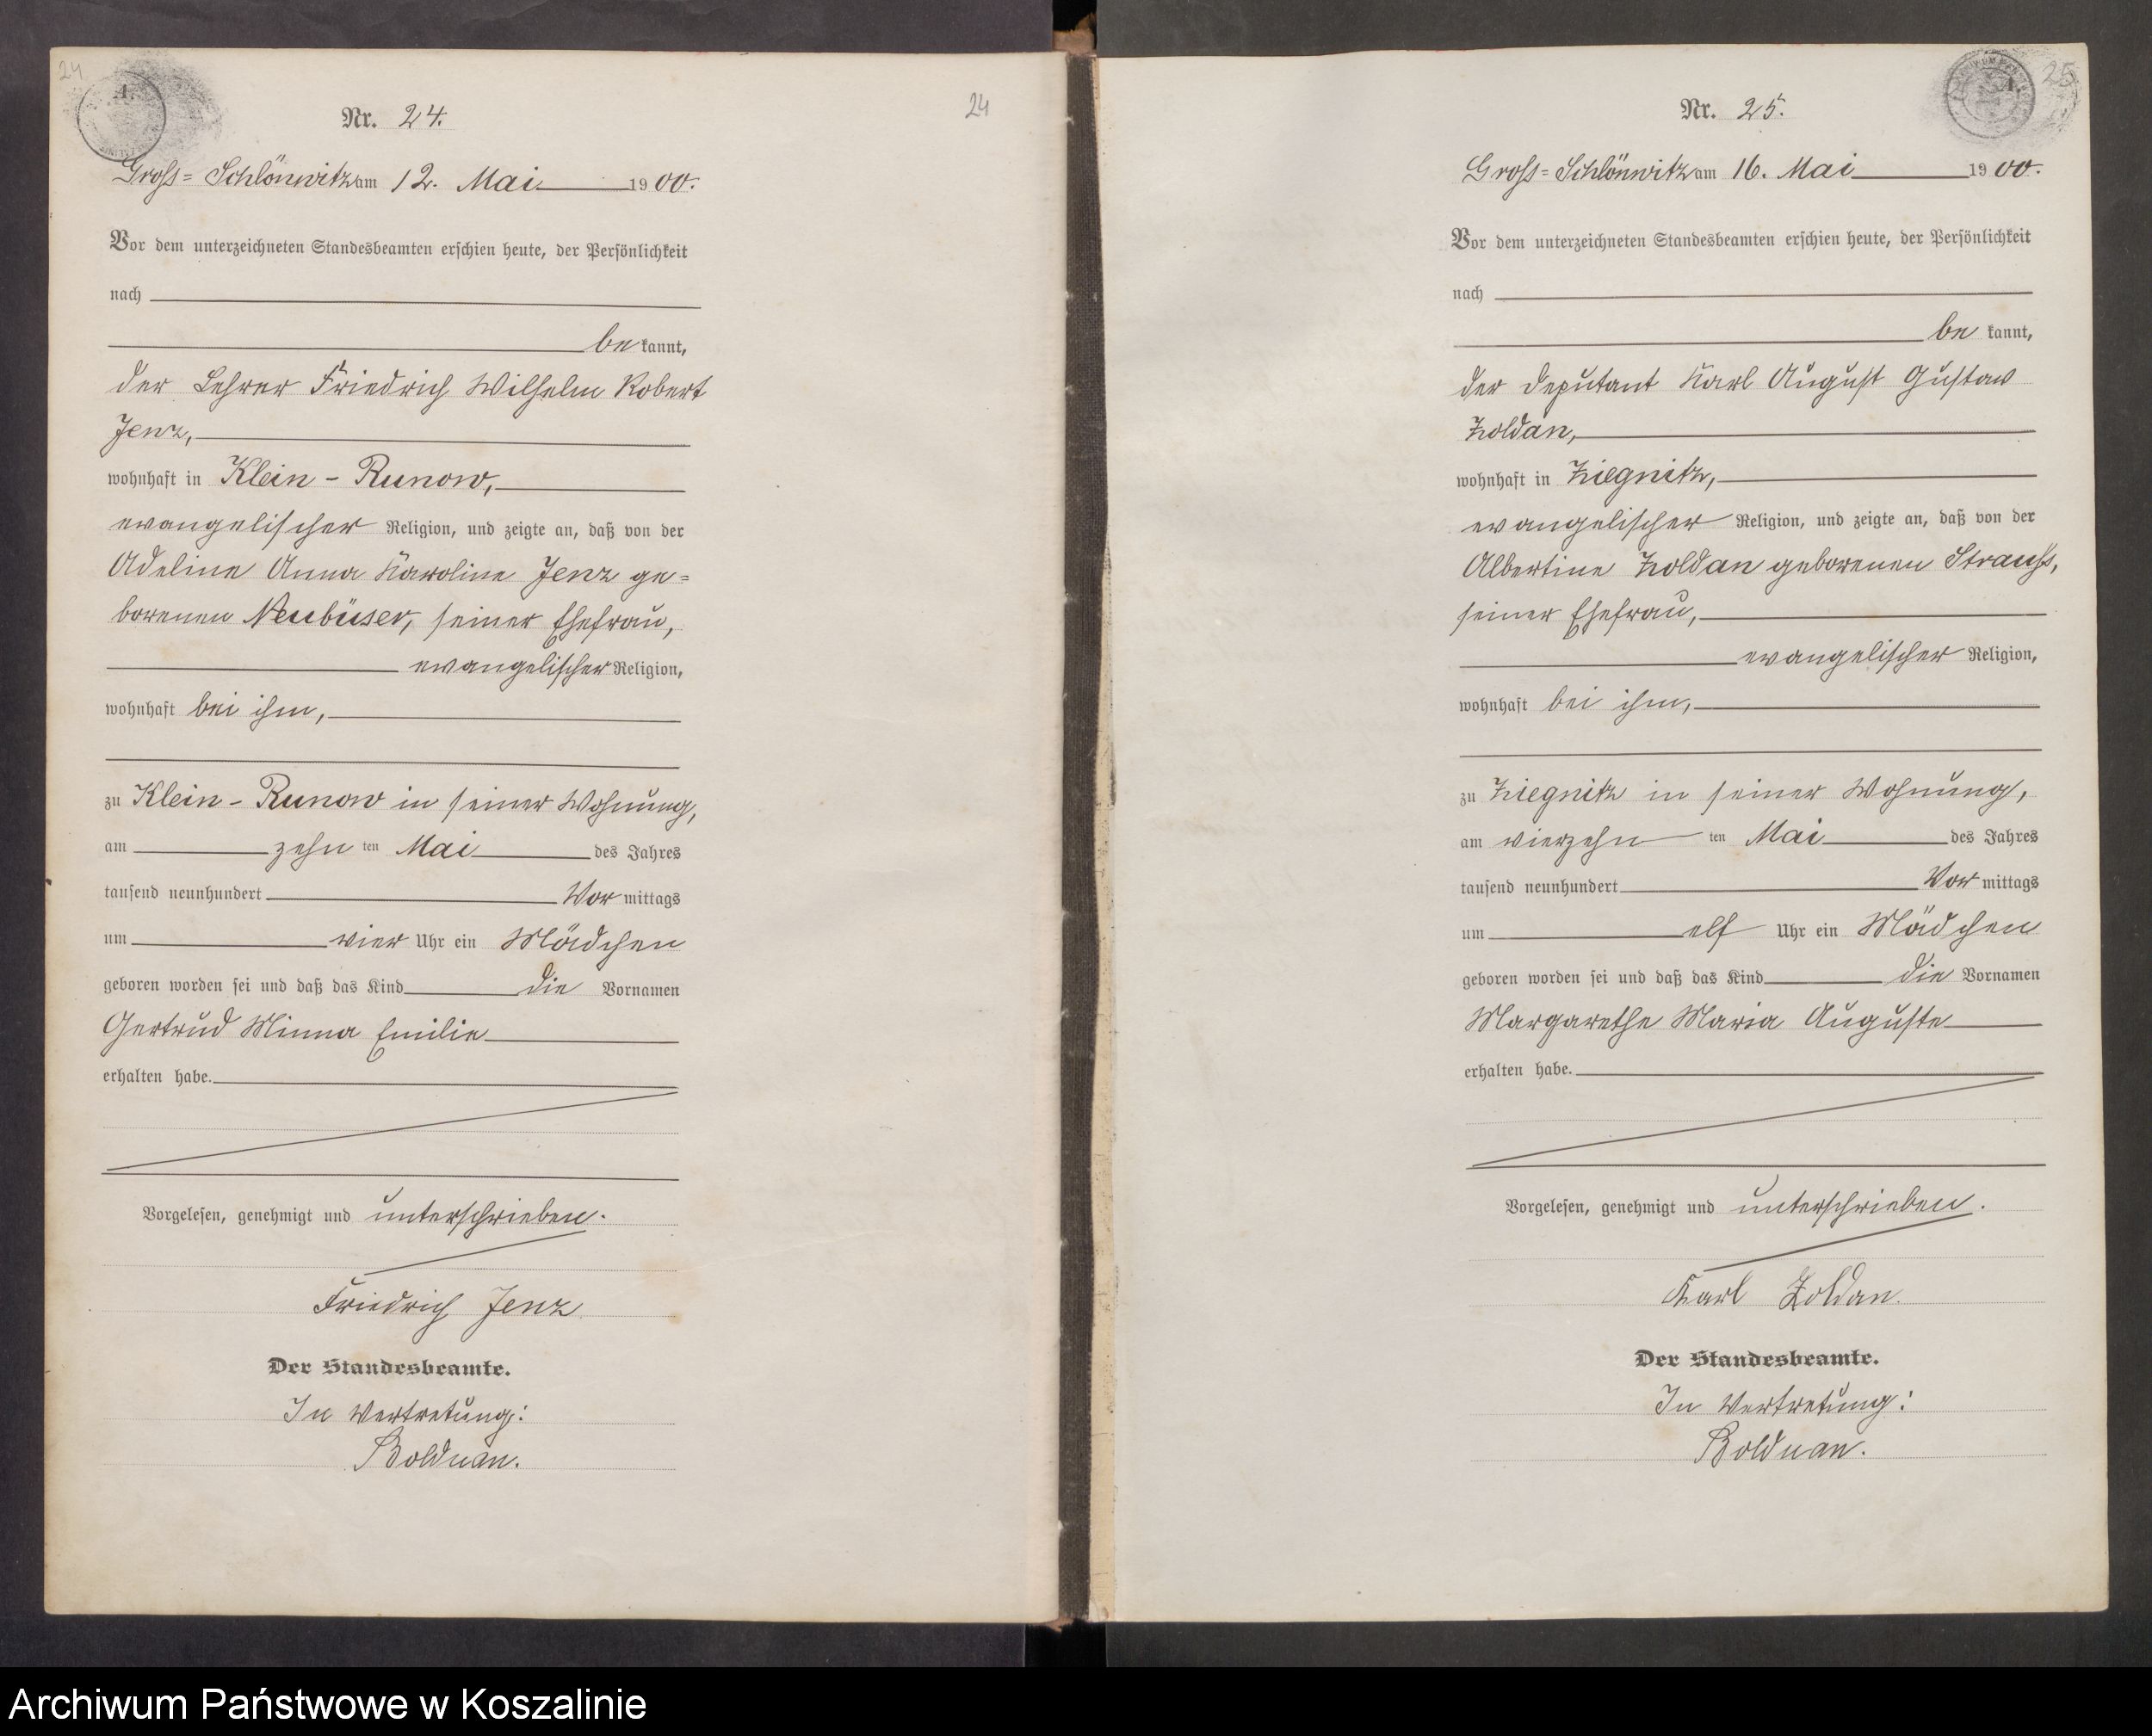 24
A.
Nr. 24.
24
Gross= Schlönwitz am 12. Mai 1900.
Vor dem unterzeichneten Standesbeamten erschien heute, der Persönlichkeit
nach
be kannt,
der Lehrer Friedrich Wilhelm Robert
Jenz,
wohnhaft in Klein - Runow,
evangelischer Religion, und zeigte an, daß von der
Adeline Anna Karoline Jenz ge=
borenen Neubüser, seiner Ehefrau,
evangelischer Religion,
wohnhaft bei ihm,
zu Klein - Runow in seiner Wohnung,
am zehn ten Mai des Jahres
tausend neunhundert Vor mittags
um vier Uhr ein Mädchen
geboren worden sei und daß das Kind die Vornamen
Gertrud Minna Emilie
erhalten habe.
Vorgelesen, genehmigt und unterschrieben.
Friedrich Jenz
Der Standesbeamte.
In Vertretung:
Bolduan.
25
A.
Nr. 25.
Gross= Schlönwitz am 16. Mai 1900.
Vor dem unterzeichneten Standesbeamten erschien heute, der Persönlichkeit
nach
be kannt,
der Deputant Karl August Gustav
Zoldan,
wohnhaft in Ziegnitz,
evangelischer Religion, und zeigte an, daß von der
Albertine Zoldan geborenen Strauss,
seiner Ehefrau,
evangelischer Religion,
wohnhaft bei ihm,
zu Ziegnitz in seiner Wohnung,
am vierzehn ten Mai des Jahres
tausend neunhundert Vor mittags
um elf Uhr ein Mädchen
geboren worden sei und daß das Kind die Vornamen
Margarethe Maria Auguste
erhalten habe.
Vorgelesen, genehmigt und unterschrieben.
Karl Zoldan.
Der Standesbeamte.
In Vertretung:
Bolduan.
Archiwum Państwowe w Koszalinie